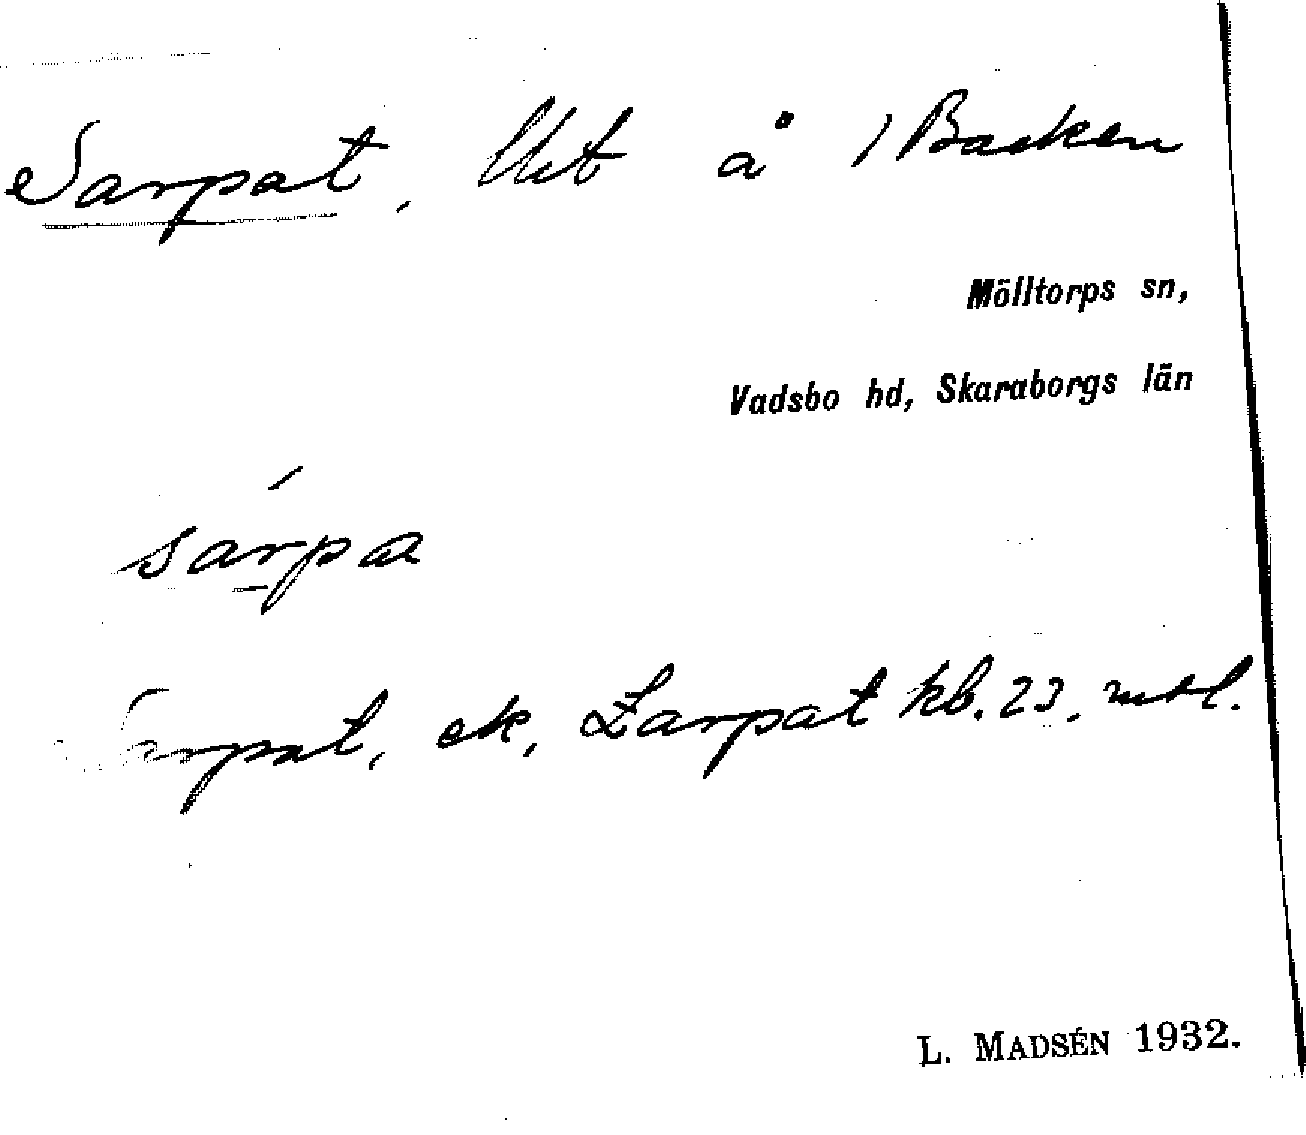 Sarpat, lht å 1 Backen
Mölltorps sn,
Vadsbo hd, Skaraborgs län
sárpa
Sarpat, ek, Zarpat kb. 23. mtl.
L. MADSÉN 1932.